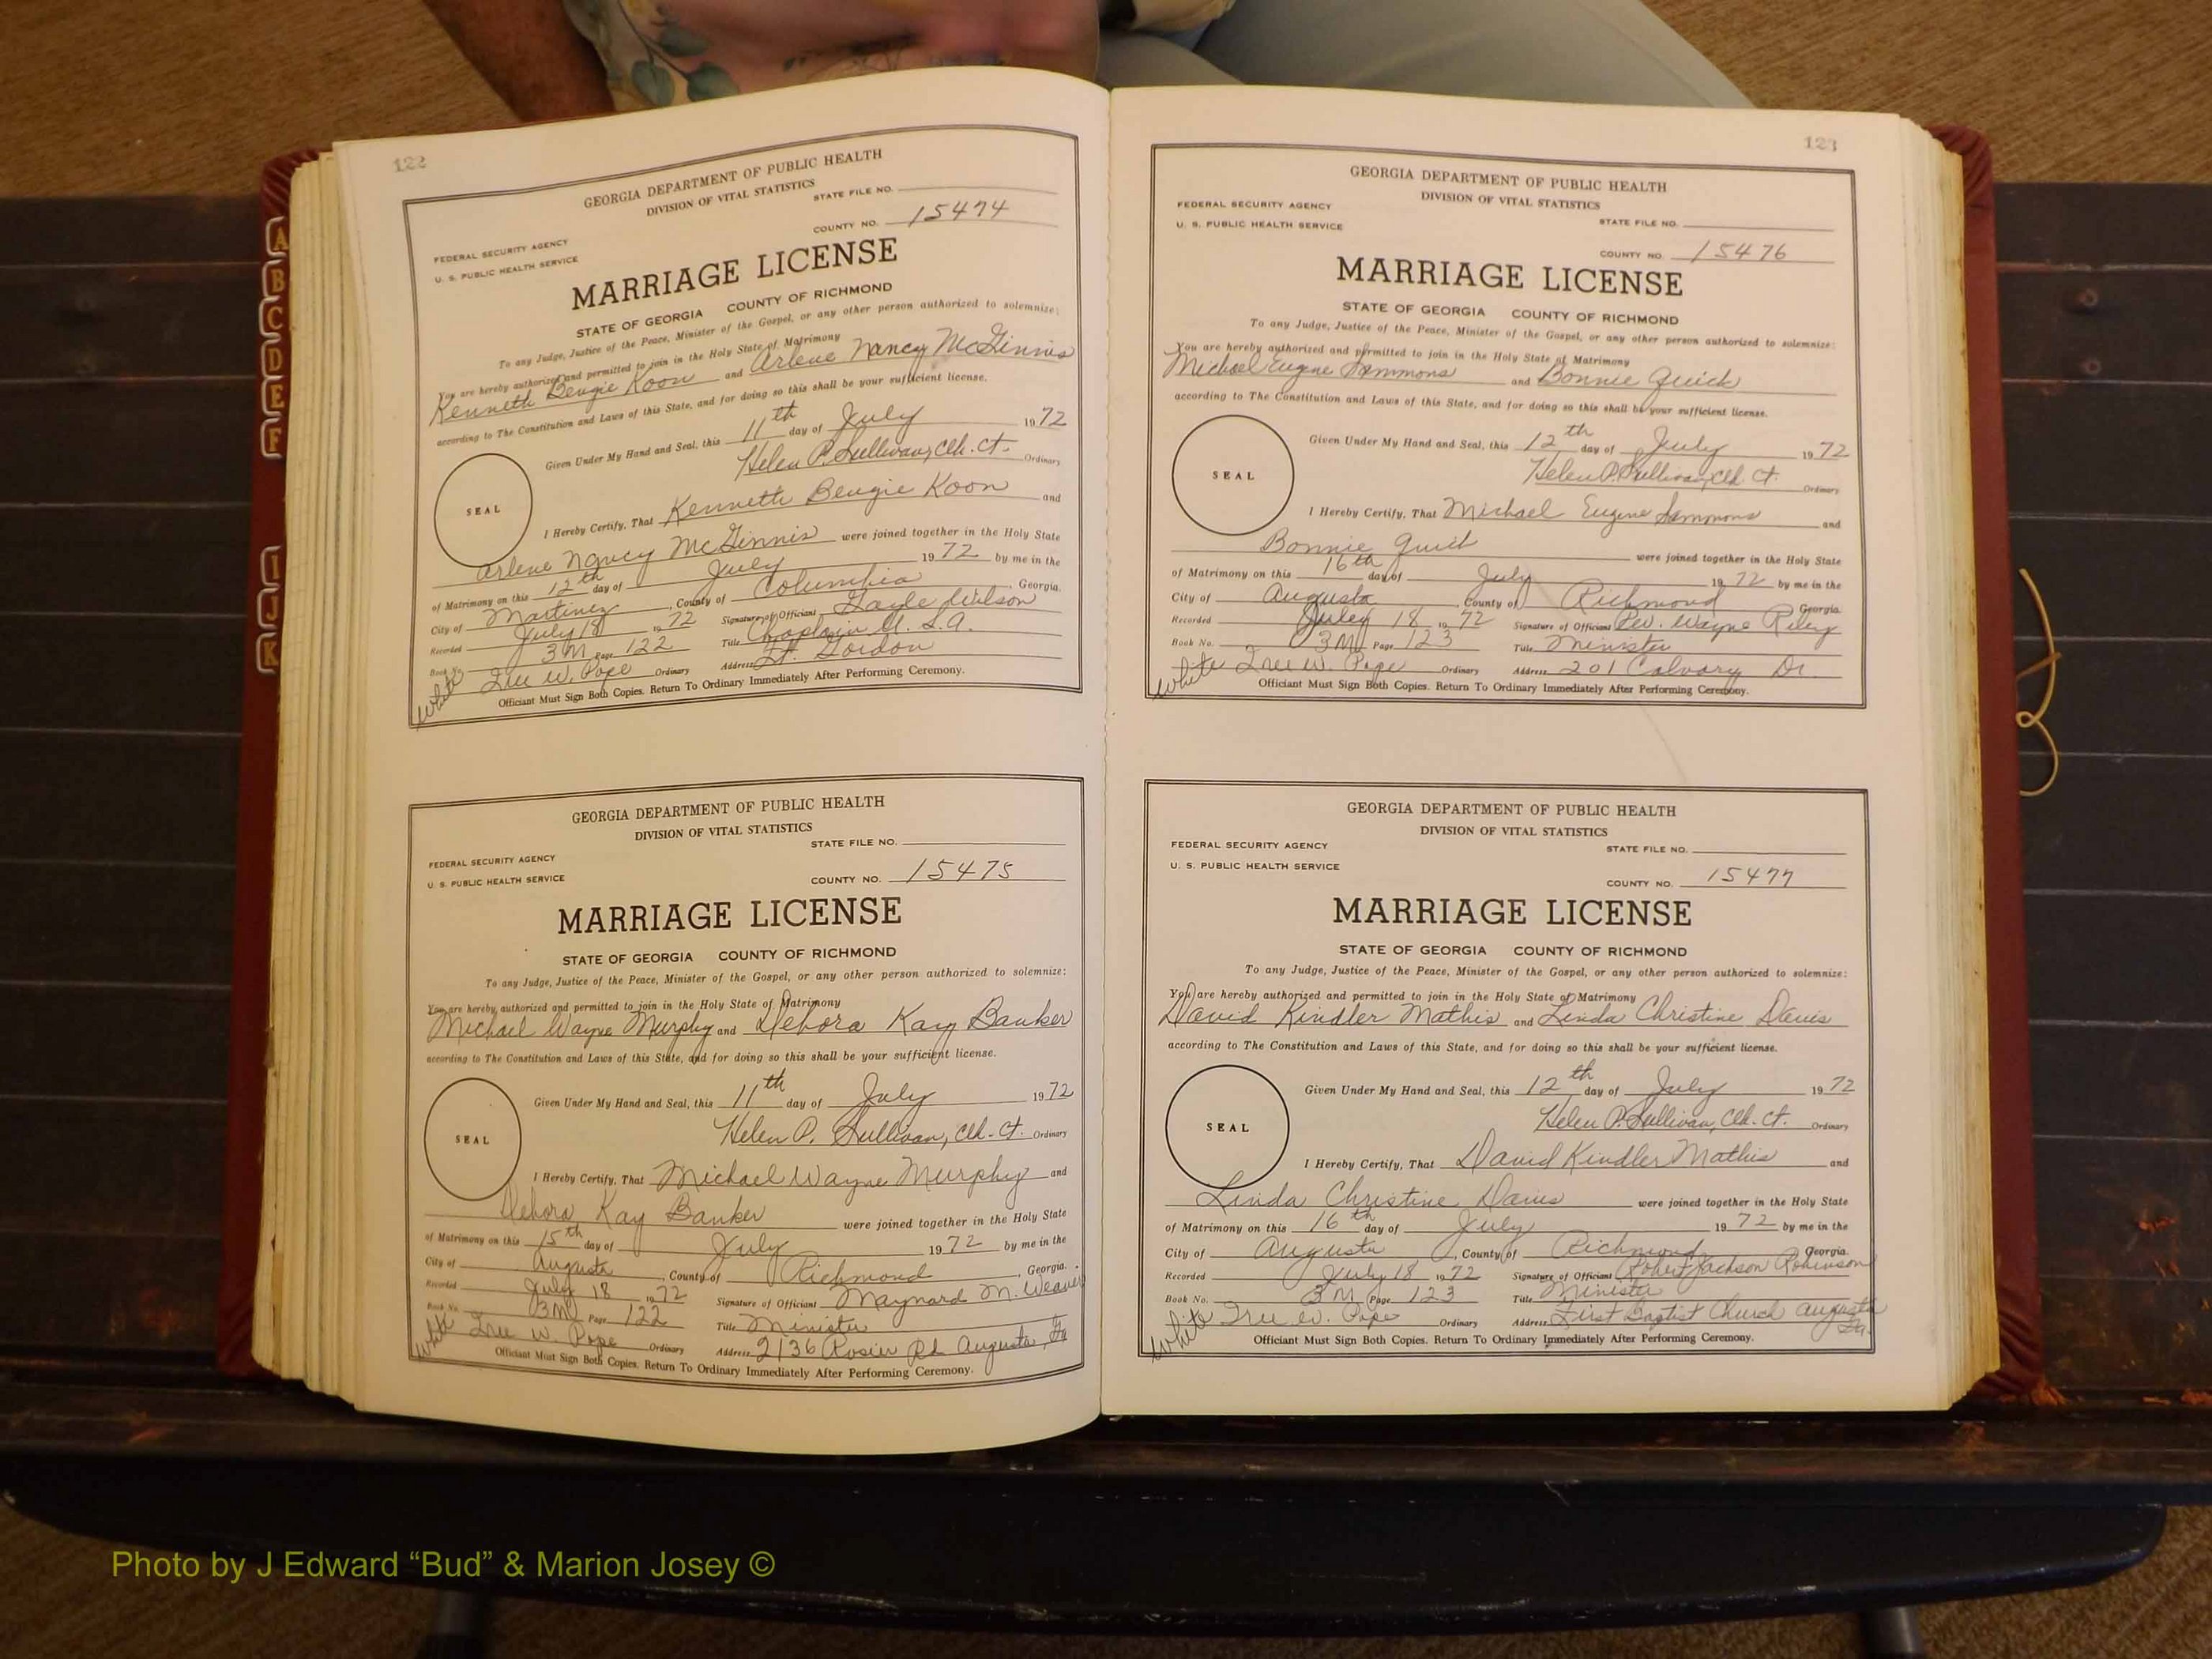 122
GEORGIA DEPARTMENT OF PUBLIC HEALTH
DIVISION OF VITAL STATISTICS
STATE FILE NO.
COUNTY NO. 15474
FEDERAL SECURITY AGENCY
U. S. PUBLIC HEALTH SERVICE
MARRIAGE LICENSE
STATE OF GEORGIA COUNTY OF RICHMOND
To any Judge, Justice of the Peace, Minister of the Gospel, or any other person authorized to solemnize:
You are hereby authorized and permitted to join in the Holy State of Matrimony
Kenneth Bengie Koon and Arlene Nancy McGinnis
according to The Constitution and Laws of this State, and for doing so this shall be your sufficient license.
Given Under My Hand and Seal, this 11th day of July 1972
Helen P. Sullivan, Clk. Ct. Ordinary
SEAL
I Hereby Certify, That Kenneth Bengie Koon and
Arlene Nancy McGinnis were joined together in the Holy State
of Matrimony on this 12th day of July 1972 by me in the
City of Martinez, County of Columbia, Georgia.
Recorded July 18 1972 Signature of Officiant Gayle
Book No. 3M Page 122 Title Chaplain U.S.A.
White Ordinary Address Ft. Gordon
Officiant Must Sign Both Copies. Return To Ordinary Immediately After Performing Ceremony.
GEORGIA DEPARTMENT OF PUBLIC HEALTH
DIVISION OF VITAL STATISTICS
STATE FILE NO.
FEDERAL SECURITY AGENCY
U. S. PUBLIC HEALTH SERVICE
COUNTY NO. 15475
MARRIAGE LICENSE
STATE OF GEORGIA COUNTY OF RICHMOND
To any Judge, Justice of the Peace, Minister of the Gospel, or any other person authorized to solemnize:
You are hereby authorized and permitted to join in the Holy State of Matrimony
Michael Wayne Murphy and Debora Kay Banker
according to The Constitution and Laws of this State, and for doing so this shall be your sufficient license.
Given Under My Hand and Seal, this 11th day of July 1972
Helen P. Sullivan, Clk. Ct. Ordinary
SEAL
I Hereby Certify, That Michael Wayne Murphy and
Debora Kay Banker were joined together in the Holy State
of Matrimony on this 15th day of July 1972 by me in the
City of Augusta, County of Richmond, Georgia.
Recorded July 18 1972 Signature of Officiant Maynard M. Weaver
Book No. 3M Page 122 Title Minister
White Ordinary Address 2136 Rosier Rd Augusta, Ga
Officiant Must Sign Both Copies. Return To Ordinary Immediately After Performing Ceremony.
123
GEORGIA DEPARTMENT OF PUBLIC HEALTH
DIVISION OF VITAL STATISTICS
FEDERAL SECURITY AGENCY
U. S. PUBLIC HEALTH SERVICE
STATE FILE NO.
COUNTY NO. 15476
MARRIAGE LICENSE
STATE OF GEORGIA COUNTY OF RICHMOND
To any Judge, Justice of the Peace, Minister of the Gospel, or any other person authorized to solemnize:
You are hereby authorized and permitted to join in the Holy State of Matrimony
Michael Eugene Sammons and Bonnie Quick
according to The Constitution and Laws of this State, and for doing so this shall be your sufficient license.
Given Under My Hand and Seal, this 12th day of July 1972
Helen P. Sullivan, Clk. Ct. Ordinary
SEAL
I Hereby Certify, That Michael Eugene Sammons and
Bonnie Quick were joined together in the Holy State
of Matrimony on this 16th day of July 1972 by me in the
City of Augusta, County of Richmond Georgia.
Recorded July 18 1972 Signature of Officiant Rev. Wayne Riley
Book No. 3M Page 123 Title Minister
White Ordinary Address 201 Calvary Dr.
Officiant Must Sign Both Copies. Return To Ordinary Immediately After Performing Ceremony.
GEORGIA DEPARTMENT OF PUBLIC HEALTH
DIVISION OF VITAL STATISTICS
FEDERAL SECURITY AGENCY
U. S. PUBLIC HEALTH SERVICE
STATE FILE NO.
COUNTY NO. 15477
MARRIAGE LICENSE
STATE OF GEORGIA COUNTY OF RICHMOND
To any Judge, Justice of the Peace, Minister of the Gospel, or any other person authorized to solemnize:
You are hereby authorized and permitted to join in the Holy State of Matrimony
David Kindler Mathis and Linda Christine Davis
according to The Constitution and Laws of this State, and for doing so this shall be your sufficient license.
Given Under My Hand and Seal, this 12th day of July 1972
Helen P. Sullivan, Clk. Ct. Ordinary
SEAL
I Hereby Certify, That David Kindler Mathis and
Linda Christine Davis were joined together in the Holy State
of Matrimony on this 16th day of July 1972 by me in the
City of Augusta, County of Richmond, Georgia.
Recorded July 18 1972 Signature of Officiant Robert Jackson Robinson
Book No. 3M Page 123 Title Minister
White Ordinary Address First Baptist Church Augusta Ga.
Officiant Must Sign Both Copies. Return To Ordinary Immediately After Performing Ceremony.
A
B
C
D
E
F
I
J
K
Photo by J Edward “Bud” & Marion Josey ©